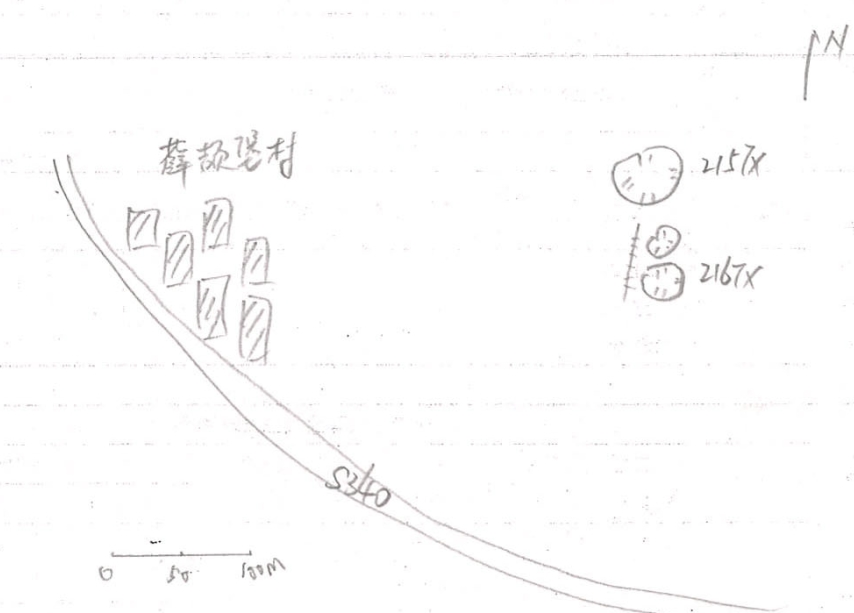 N
薛颉堡村
215TX
216TX
S340
0 50 100M